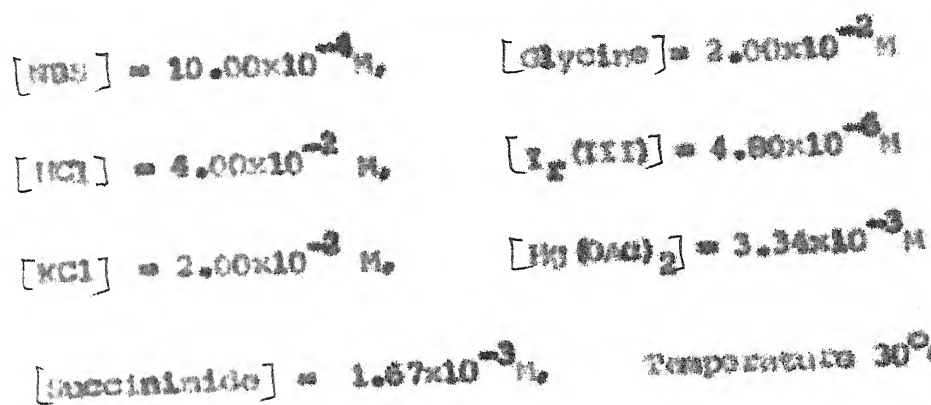 [NBS] = 10.00x10⁻⁴M, [Glycine]= 2.00x10⁻²M
[HCl] = 4.00x10⁻² M, [Ir (III)] = 4.80x10⁻⁶M
[KCl] = 2.00x10⁻³ M, [Hg (OAC)₂] = 3.34x10⁻³M
[Succinimide] = 1.67x10⁻³M, Temperature 30⁰